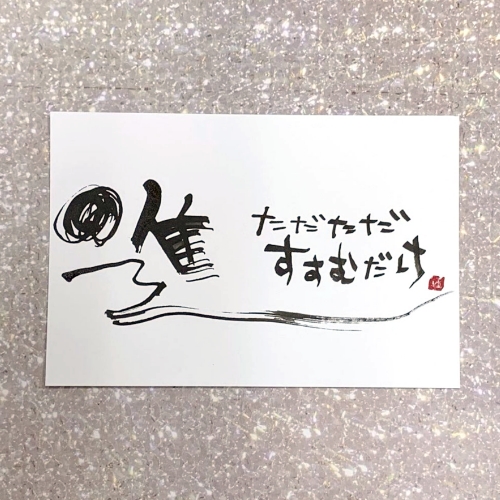 進
ただただ
すすむだけ